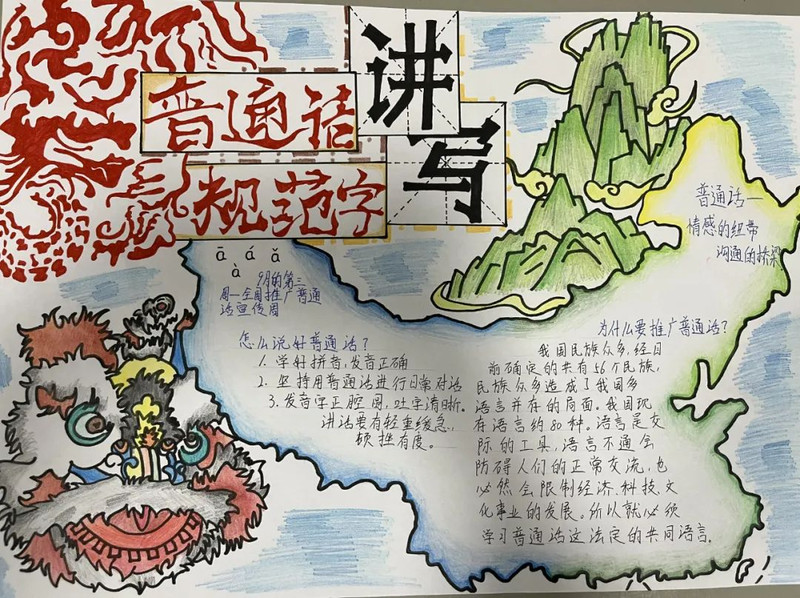 讲
普通话
写
规范字
ā á ǎ
à
9月的第三
周—全国推广普通
话宣传周
怎么说好普通话？
1. 学好拼音，发音正确
2. 坚持用普通话进行日常对话
3. 发音字正腔圆，吐字清晰。
讲话要有轻重缓急，
顿挫有度。
普通话—
情感的纽带
沟通的桥梁
为什么要推广普通话？
我国民族众多，经日
前确定的共有56个民族，
民族众多造成了我国多
语言并存的局面。我国现
存语言约80种。语言是交
际的工具，语言不通会
防碍人们的正常交流，也
必然会限制经济.科技.文
化事业的发展。所以就必须
学习普通话这法定的共同语言.